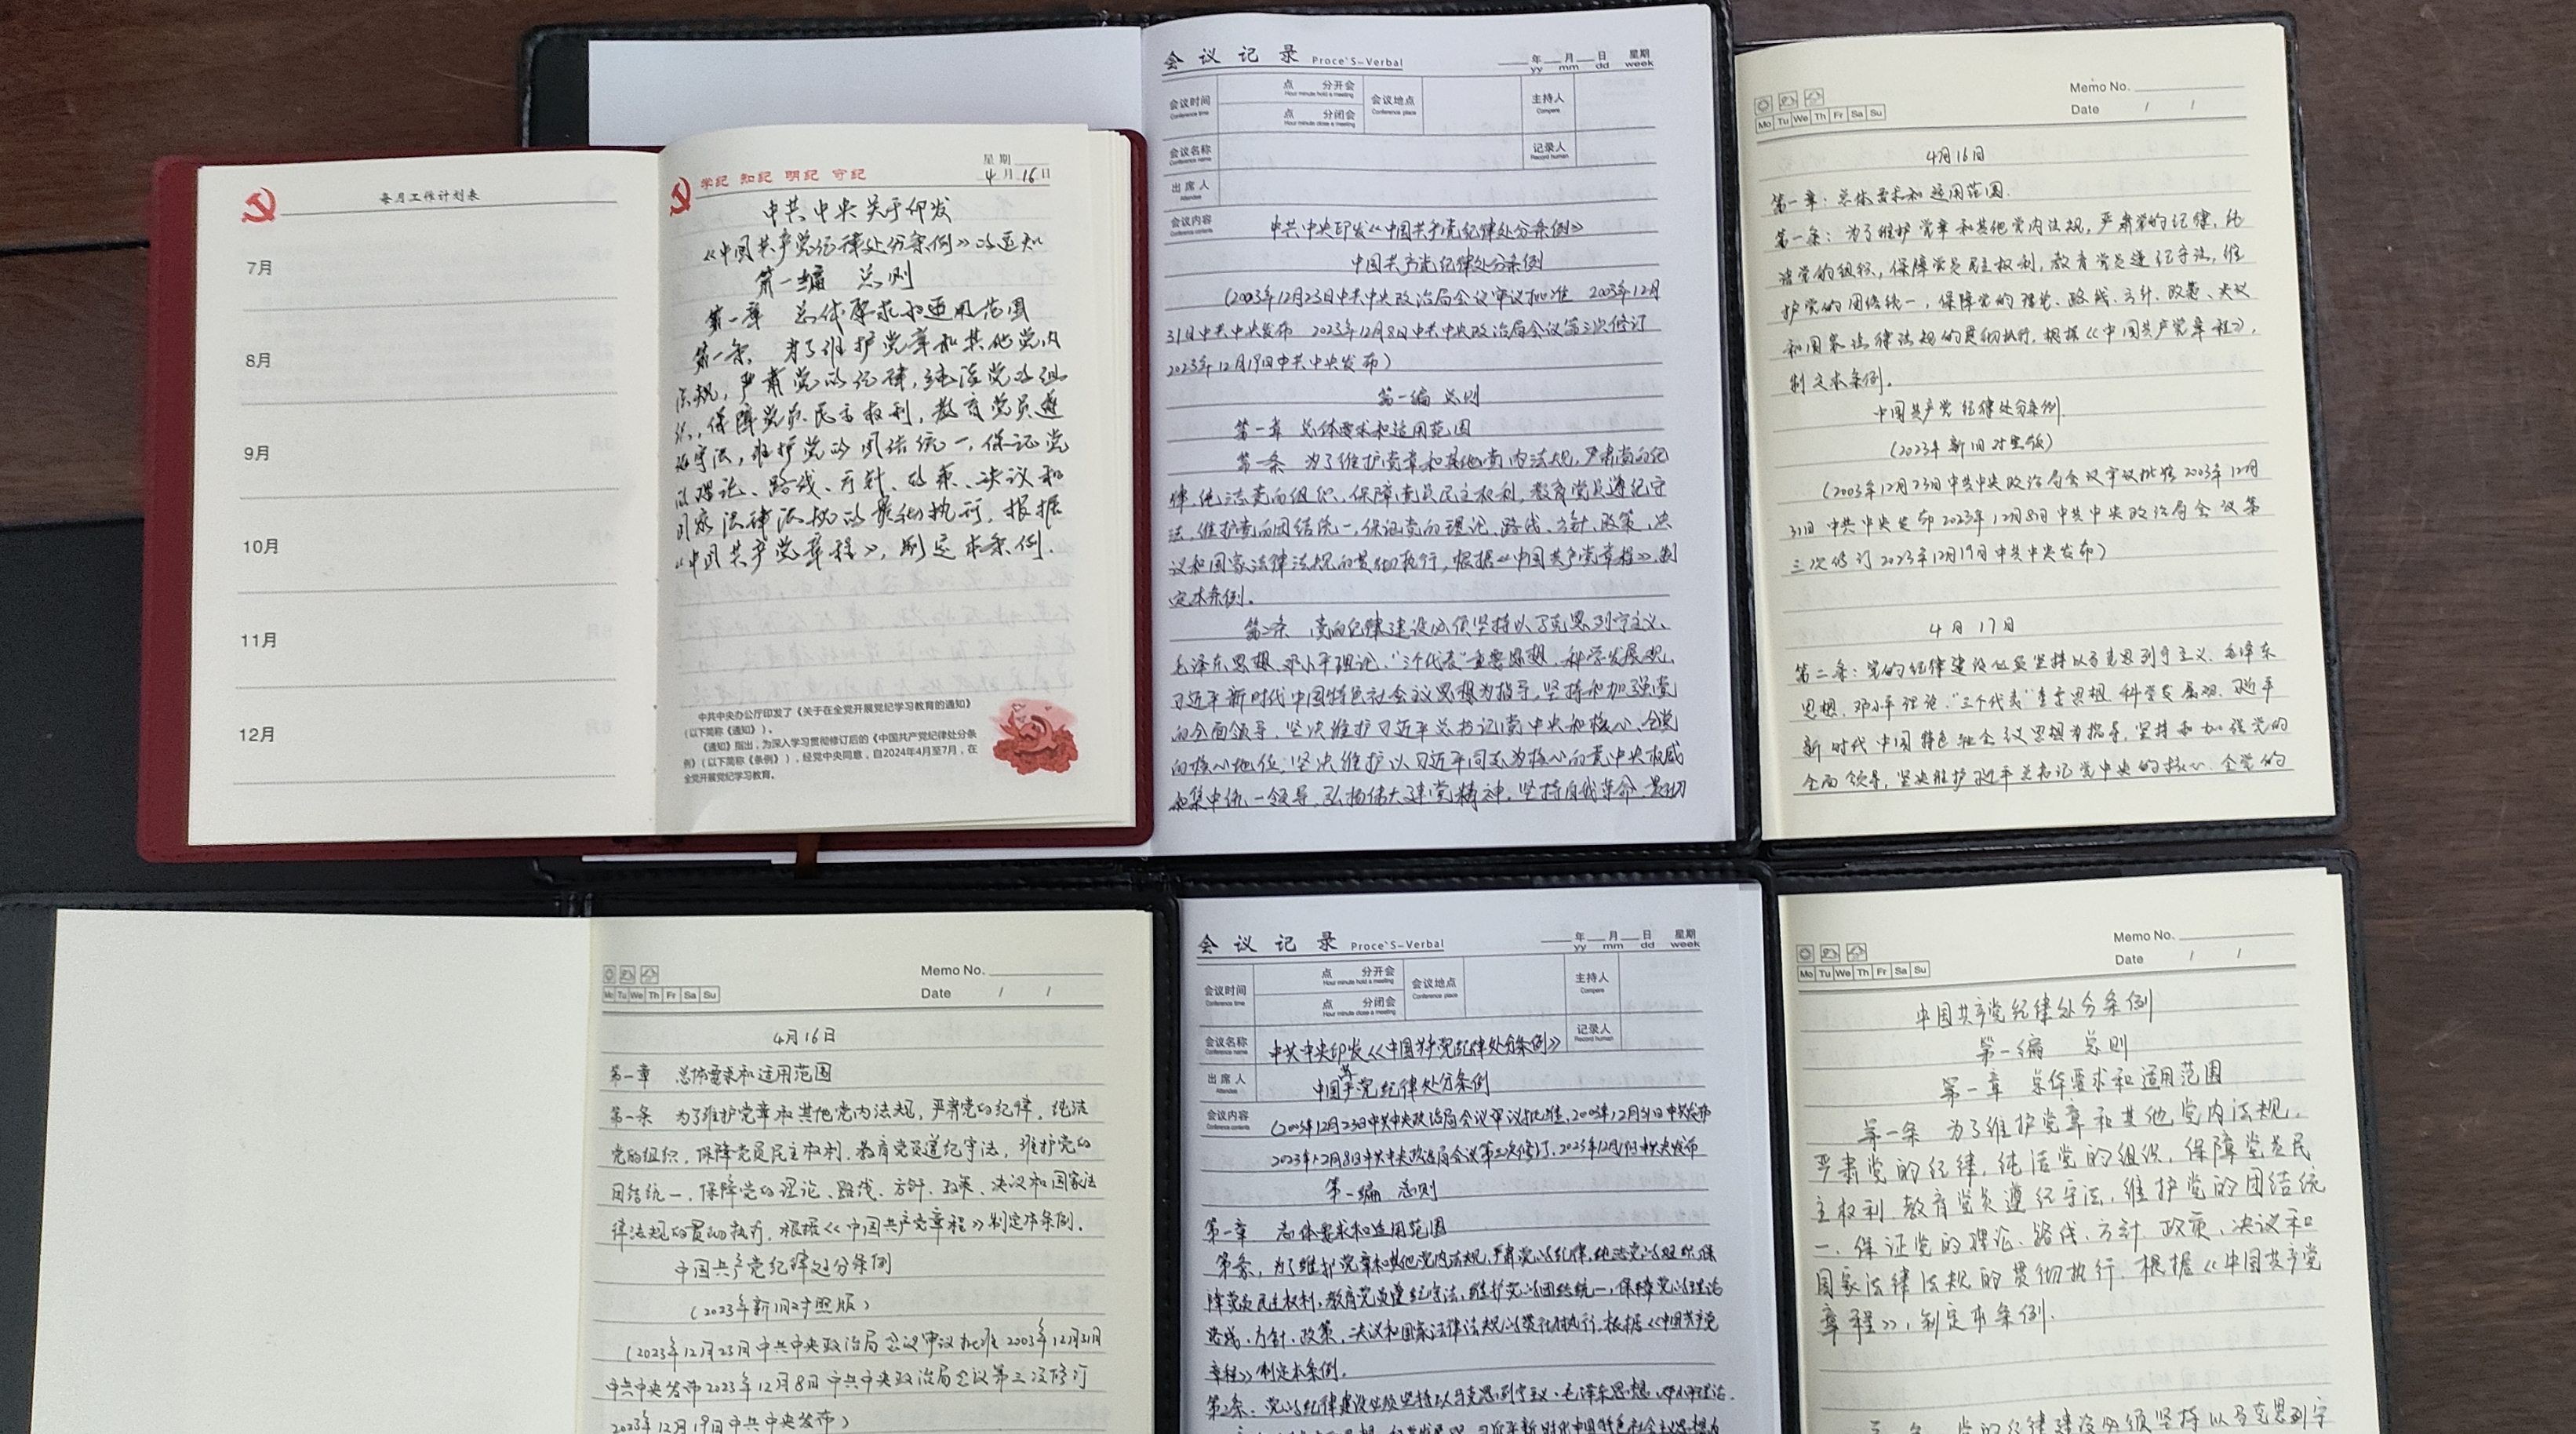 每月工作计划表
7月
8月
9月
10月
11月
12月
学纪 知纪 明纪 守纪
星期
4月16日
中共中央关于印发
《中国共产党纪律处分条例》的通知
第一编 总则
第一章 总体要求和适用范围
第一条 为了维护党章和其他党内
法规,严肃党的纪律,纯洁党的组
织,保障党员民主权利,教育党员遵
纪守法,维护党的团结统一,保证党
的理论、路线、方针、政策、决议和
国家法律法规的贯彻执行,根据
《中国共产党章程》,制定本条例.
中共中央办公厅印发了《关于在全党开展党纪学习教育的通知》
(以下简称《通知》)。
《通知》指出,为深入学习贯彻修订后的《中国共产党纪律处分条
例》(以下简称《条例》),经党中央同意,自2024年4月至7月,在
全党开展党纪学习教育。
会议记录 Proce`S-Verbal
年 月 日 星期
yy mm dd week
会议时间 点 分开会 会议地点 主持人
Conference time Hour minute hold a meeting Conference place Compere
点 分闭会
Hour minute close a meeting
会议名称 记录人
Conference name Record human
出席人
Attendee
会议内容
Conference contents
中共中央印发《中国共产党纪律处分条例》
中国共产党纪律处分条例
(2003年12月23日中共中央政治局会议审议批准 2003年12月
31日中共中央发布 2023年12月8日中共中央政治局会议第三次修订
2023年12月19日中共中央发布)
第一编 总则
第一章 总体要求和适用范围
第一条 为了维护党章和其他党内法规,严肃党的纪
律,纯洁党的组织,保障党员民主权利,教育党员遵纪守
法,维护党的团结统一,保证党的理论、路线、方针、政策、决
议和国家法律法规的贯彻执行,根据《中国共产党章程》,制
定本条例。
第二条 党的纪律建设必须坚持以马克思列宁主义、
毛泽东思想、邓小平理论、“三个代表”重要思想、科学发展观、
习近平新时代中国特色社会主义思想为指导,坚持和加强党
的全面领导,坚决维护习近平总书记党中央和核心、全党
的核心地位,坚决维护以习近平同志为核心的党中央权威
和集中统一领导,弘扬伟大建党精神,坚持自我革命,贯彻
Memo No.
Date / /
Mo Tu We Th Fr Sa Su
4月16日
第一章:总体要求和适用范围.
第一条:为了维护党章和其他党内法规,严肃党的纪律,纯
洁党的组织,保障党员民主权利,教育党员遵纪守法,维
护党的团结统一,保障党的理论、路线、方针、政策、决议
和国家法律法规的贯彻执行,根据《中国共产党章程》,
制定本条例。
中国共产党纪律处分条例
(2023年新旧对照版)
(2003年12月23日中共中央政治局会议审议批准2003年12月
31日中共中央发布2023年12月8日中共中央政治局会议第
三次修订2023年12月19日中共中央发布)
4月17日
第二条:党的纪律建设必须坚持以马克思列宁主义、毛泽东
思想、邓小平理论、“三个代表”重要思想、科学发展观、习近平
新时代中国特色社会议思想为指导,坚持和加强党的
全面领导,坚决维护习近平总书记党中央的核心、全党的
Memo No.
Date / /
Mo Tu We Th Fr Sa Su
4月16日
第一章 总体要求和适用范围
第一条 为了维护党章和其他党内法规,严肃党的纪律,纯洁
党的组织,保障党员民主权利,教育党员遵纪守法,维护党的
团结统一,保障党的理论、路线、方针、政策、决议和国家法
律法规的贯彻执行,根据《中国共产党章程》制定本条例.
中国共产党纪律处分条例
(2023年新旧对照版)
(2023年12月23日中共中央政治局会议审议批准2003年12月31日
中共中央发布2023年12月8日中共中央政治局会议第三次修订
2023年12月19日中共中央发布)
会议记录 Proce`S-Verbal
年 月 日 星期
yy mm dd week
会议时间 点 分开会 会议地点 主持人
Conference time Hour minute hold a meeting Conference place Compere
点 分闭会
Hour minute close a meeting
会议名称 中共中央印发《中国共产党纪律处分条例》 记录人
Conference name Record human
出席人 中国共产党纪律处分条例
Attendee
会议内容 (2003年12月23日中共中央政治局会议审议批准,2003年12月31日中共发布
Conference contents
2023年12月8日中共中央政治局会议第三次修订,2023年12月19日中共央发布
第一编 总则
第一章 总体要求和适用范围
第条,为了维护党章和其他党内法规,严肃党的纪律,纯洁党的组织,保
障党员民主权利,教育党员遵纪守法,维护党的团结统一,保障党的理论
路线、方针、政策、决议和国家法律法规的贯彻执行,根据《中国共产党
章程》制定本条例.
第二条:党的纪律建设必须坚持以马克思列宁主义、毛泽东思想、邓小平理论.
Memo No.
Date / /
Mo Tu We Th Fr Sa Su
中国共产党纪律处分条例
第一编 总则
第一章 总体要求和适用范围
第一条 为了维护党章和其他党内法规,
严肃党的纪律,纯洁党的组织,保障党员民
主权利,教育党员遵纪守法,维护党的团结统
一,保证党的理论、路线、方针、政策、决议和
国家法律法规的贯彻执行,根据《中国共产党
章程》,制定本条例.
党的纪律建设必须坚持以马克思列宁